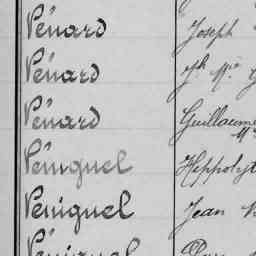 Pénard Joseph
Pénard Jh Mie
Pénard Guillaume
Péniguel Hippolyt
Péniguel Jean
Péniguel